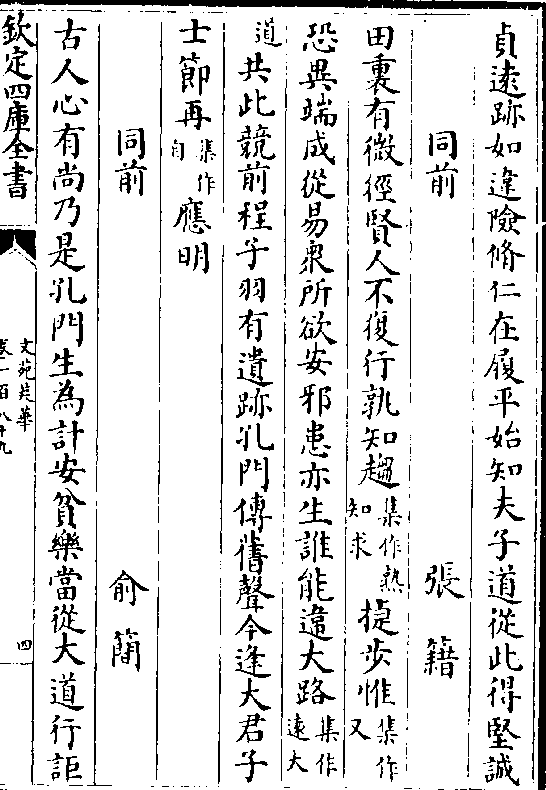 貞遠跡如違險脩仁在履平始知夫子道從此得堅誠
同前 張籍
田裏有微徑賢人不復行孰知趨集作熟知求捷步惟集作又
恐異端成從易衆所欲安邪患亦生誰能違大路集作遠大
道共此競前程子羽有遺跡孔門傳舊聲今逢大君子
士節再集作自應明
同前 俞簡
古人心有尚乃是孔門生為計安貧樂當從大道行詎
欽定四庫全書
文苑英華
卷一百八十九
四